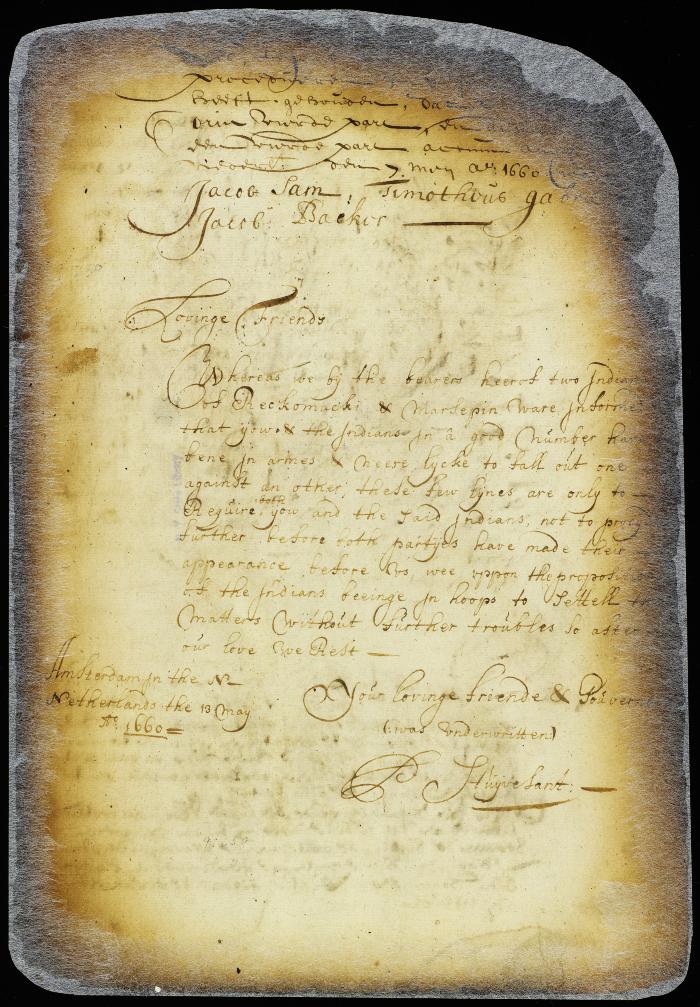 heeft gehouden,
den 7 May ao. 1660
Jacob Sam, Timotheus ga
Jacob Backer
Lovinge Friends
Whereas we by the bearers heerof two Indian
of Reckomacki & Marsepin Ware Informe
that you & the Indians in a good number hav
bene in armes & neere lycke to fall out one
against an other, these few lynes are only to
Require both you and the said Indians, not to proc
further before both partyes have made their
appearance before Us, wee uppon the propositi
of the Indians beeinge in hoops to settell
Matters Without further troubles so after
our love We Rest
Amsterdam in the N
Netherlands the 13 May
Ao. 1660
Your lovinge friende & Gouver
(was underwritten)
P Stuyvesant.